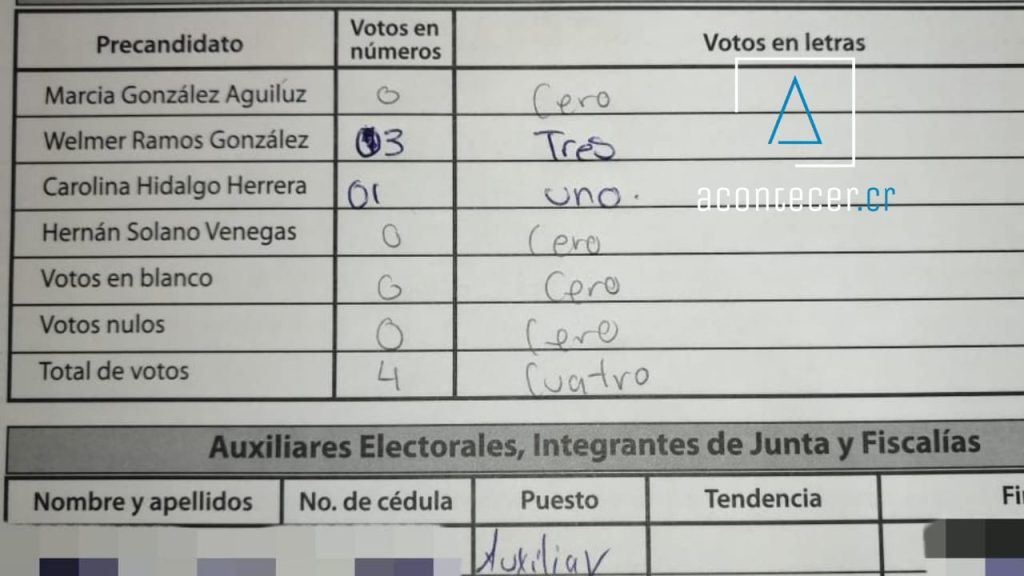 Precandidato Votos en números Votos en letras
Marcia González Aguiluz 0 Cero
Welmer Ramos González 03 Tres
Carolina Hidalgo Herrera 01 uno.
Hernán Solano Venegas 0 Cero
Votos en blanco 0 Cero
Votos nulos 0 Cero
Total de votos 4 Cuatro
acontecer.cr
Auxiliares Electorales, Integrantes de Junta y Fiscalías
Nombre y apellidos No. de cédula Puesto Tendencia
Auxiliar